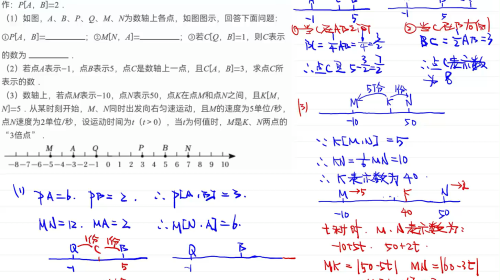 作：P[A，B]=2．
（1）如图，A、B、P、Q、M、N为数轴上各点，如图图示，回答下面问题：
①P[A，B]=________；②M[N，A]=________；③若C[Q，B]=1，则C表示
的数为________．
（2）若点A表示-1，点B表示5，点C是数轴上一点，且C[A，B]=3，求点C所
表示的数．
（3）数轴上，若点M表示-10，点N表示50，点K在点M和点N之间，且K[M，
N]=5．从某时刻开始，M、N同时出发向右匀速运动，且M的速度为5单位/秒，
点N速度为2单位/秒，设运动时间为t（t＞0），当t为何值时，M是K、N两点的
“3倍点”．
M A Q P B N
-8 -7 -6 -5 -4 -3 -2 -1 0 1 2 3 4 5 6 7 8 9 10
(1) PA=6. PB=2. ∴P[A,B]=3.
MN=12. MA=2 ∴M[N,A]=6.
Q C B
-1 5
Q B
-1
-1 5
-1 5
∴点C是
BC=½AB=3
∴点C表示数
为 8
(3)
M K N
-10 50
∵K[M,N]=5
∴KN=⅙MN=10
∴K表示数为 40.
M→5 K N→2
-10 40 50
t秒时. M、N表示数为:
-10+5t. 50+2t.
MK=|50-5t| MN=|60-3t|